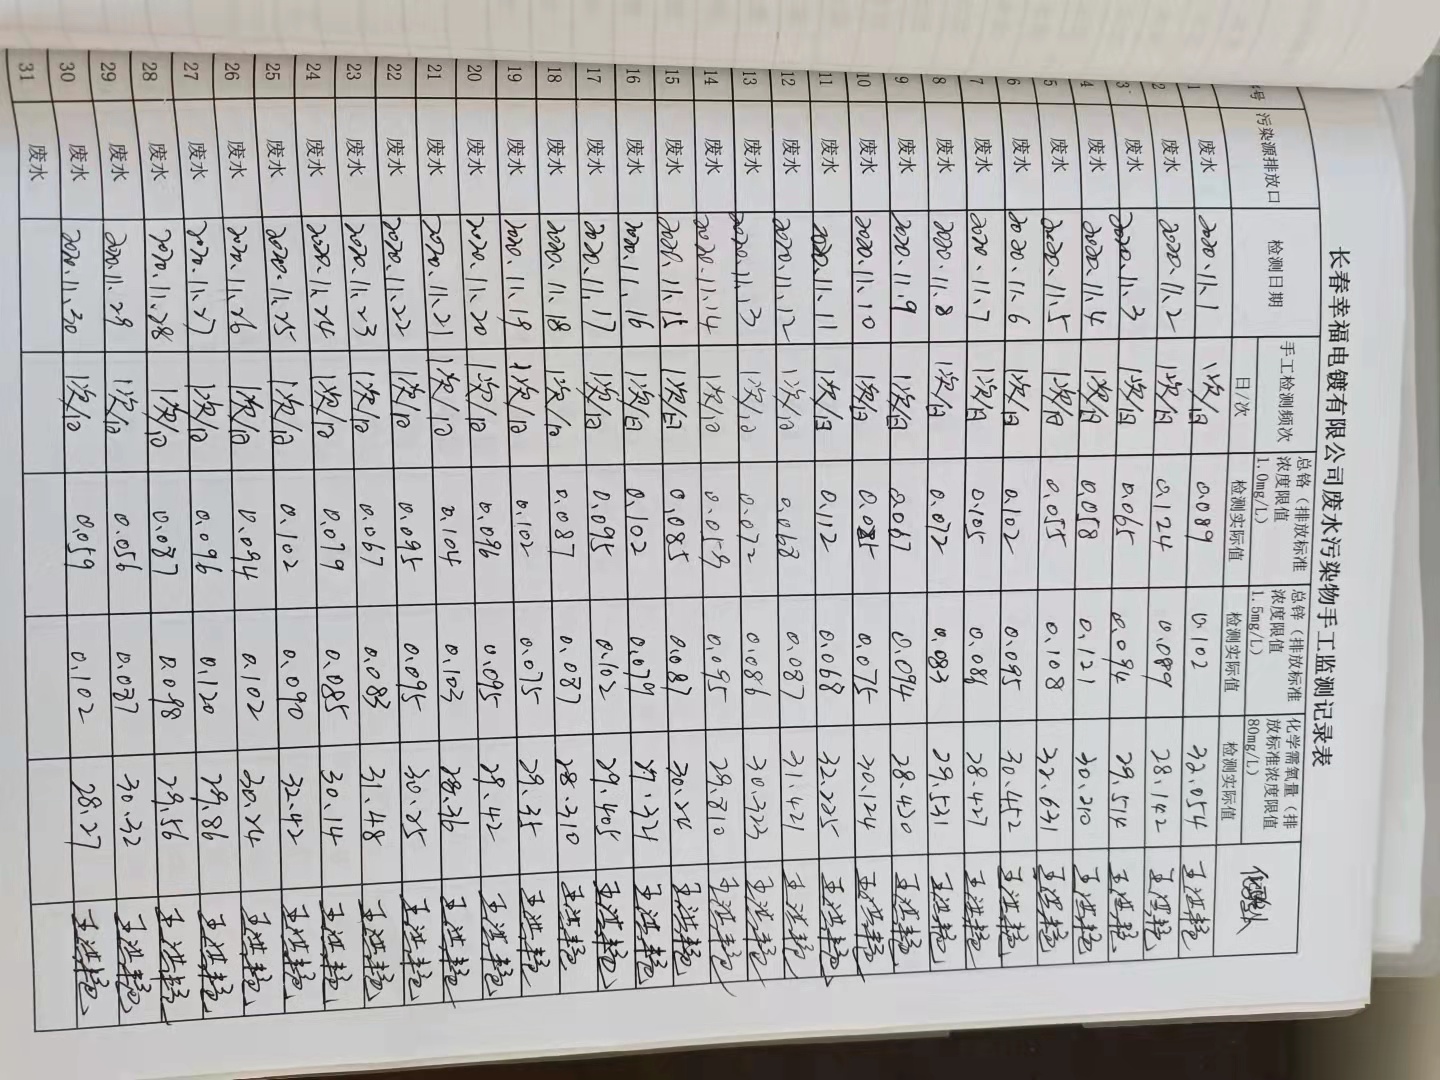 长春幸福电镀有限公司废水污染物手工监测记录表
号 污染源排放口 检测日期 手工检测频次 日/次 总铬（排放标准浓度限值1.0mg/L） 检测实际值 总锌（排放标准浓度限值1.5mg/L） 检测实际值 化学需氧量（排放标准浓度限值80mg/L） 检测实际值 化验人
1 废水 2020.11.1 1次/日 0.089 0.102 32.054
2 废水 2020.11.2 1次/日 0.124 0.089 28.142
3 废水 2020.11.3 1次/日 0.065 0.094 29.514
4 废水 2020.11.4 1次/日 0.058 0.121 30.210
5 废水 2020.11.5 1次/日 0.055 0.108 32.631
6 废水 2020.11.6 1次/日 0.102 0.095 30.452
7 废水 2020.11.7 1次/日 0.105 0.086 28.427
8 废水 2020.11.8 1次/日 0.072 0.083 29.531
9 废水 2020.11.9 1次/日 0.067 0.094 28.430
10 废水 2020.11.10 1次/日 0.085 0.075 30.124
11 废水 2020.11.11 1次/日 0.112 0.068 32.225
12 废水 2020.11.12 1次/日 0.068 0.087 31.421
13 废水 2020.11.13 1次/日 0.072 0.086 30.323
14 废水 2020.11.14 1次/日 0.059 0.095 29.810
15 废水 2020.11.15 1次/日 0.085 0.087
16 废水 2020.11.16 1次/日 0.102 0.079
17 废水 2020.11.17 1次/日 0.095 0.102 29.405
18 废水 2020.11.18 1次/日 0.087 0.087 28.310
19 废水 2020.11.19 1次/日 0.102 0.075 29.35
20 废水 2020.11.20 1次/日 0.096 0.095 29.42
21 废水 2020.11.21 1次/日 0.104 0.103 28.36
22 废水 2020.11.22 1次/日 0.095 0.095 30.25
23 废水 2020.11.23 1次/日 0.067 0.083 31.48
24 废水 2020.11.24 1次/日 0.079 0.085 30.14
25 废水 2020.11.25 1次/日 0.102 0.090 32.42
26 废水 2020.11.26 1次/日 0.094 0.102 30.24
27 废水 2020.11.27 1次/日 0.096 0.120 29.86
28 废水 2020.11.28 1次/日 0.087 0.098 29.56
29 废水 2020.11.29 1次/日 0.056 0.087 30.32
30 废水 2020.11.30 1次/日 0.059 0.102 28.27
31 废水